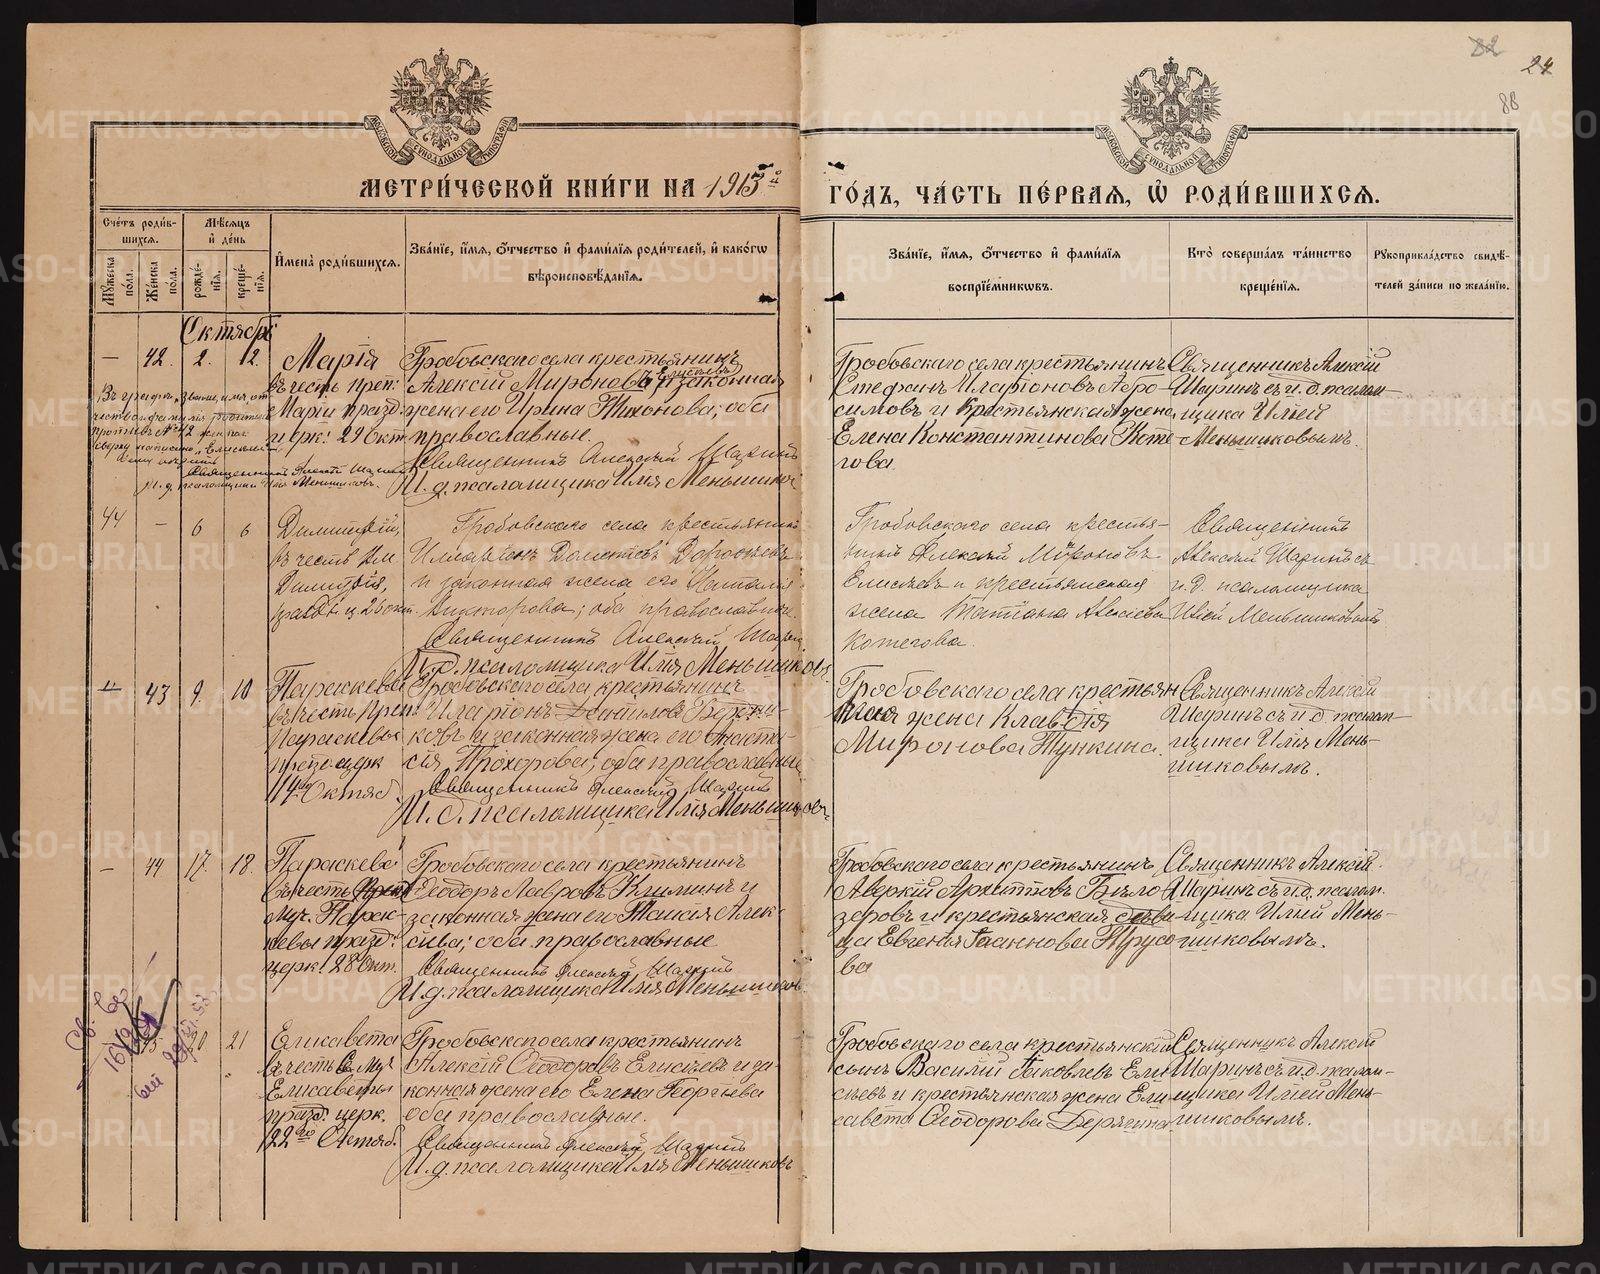 82
24
88
МОСКОВСКОЙ СѴНОДАЛЬНОЙ ТИПОГРАФІИ
МОСКОВСКОЙ СѴНОДАЛЬНОЙ ТИПОГРАФІИ
МЕТРИ́ЧЕСКОЙ КНИ́ГИ НА 1913й
ГО́ДЪ, ЧА́СТЬ ПЕ́РВАЯ, Ѡ҆ РОДИ́ВШИХСЯ.
Сче́тъ роди́в-
шихся.
Мѣ́сяцъ
и҆ де́нь
Му́жеска по́ла.
Же́нска по́ла.
рожде́-
нїя.
креще́-
нїя.
И҆мена̀ роди́вшихся.
Зва́нїе, и҆́мя, ѻ҆́тчество и҆ фами́лїя роди́телей, и҆ како́гѡ
вѣроисповѣ́данїя.
Зва́нїе, и҆́мя, ѻ҆́тчество и҆ фами́лїя
воспрїе́мникѡвъ.
Кто̀ соверша́лъ та́инство
креще́нїя.
Рꙋкоприкла́дство свидѣ́-
телей за́писи по жела́нїю.
Октябрь
— 42. 2. 12.
Марія
въ честь преп:
Маріи празд.
ц ерк: 29 окт
Гробовскаго села крестьянинъ
Алексій Мироновъ Елисѣевъ и законная
жена его Ирина Тихонова; оба
православные.
Священникъ Алексѣй Шаринъ
И. д. псаломщика Илія Меньшиковъ
Гробовскаго села крестьянинъ
Стефанъ Иларіоновъ Абро-
симовъ и крестьянская жена
Елена Константинова Коте
гова.
Священникъ Алексій
Шаринъ съ и. д. псалом-
щика Иліей
Меньшиковымъ.
Священникъ Алексѣй Шаринъ
И. д. псаломщика Илія Меньшиковъ.
44 — 6 6
Димитрій,
въ честь вм
Димитрія,
празд: ц 26 окт.
Гробовскаго села крестьянинъ
и законная жена его Наталія
Викторова; оба православные.
Священникъ Алексѣй Шаринъ
И. д. псаломщика Илія Меньшиковъ.
Гробовскаго села крестья-
нинъ Алексѣй Мироновъ
Елисѣевъ и крестьянская
жена Татіана Алексѣева
Котегова.
Священникъ
Алексѣй Шаринъ съ
и. д. псаломщика
Иліей Меньшиковымъ
43 9. 10
Параскева
въ честь Преп:
Параскевы
празд. церк
14го Октяб.
Гробовскаго села крестьянинъ
Иларіонъ Даниловъ Берсени-
ковъ и законная жена его Анаста-
сія Прохорова; оба православные
Священникъ Алексѣй Шаринъ
И. д. псаломщика Илія Меньшиковъ.
Гробовскаго села крестьян
ская жена Клавдія
Миронова Тункина.
Священникъ Алексій
Шаринъ съ и. д. псалом-
щика Илія Мень-
шиковымъ.
— 44 17. 18.
Параскева
въ честь Препод
муч. Парас-
кевы празд:
церк: 28 Окт.
Гробовскаго села крестьянинъ
Ѳеодоръ Лавровъ Климинъ и
законная жена его Таисія Алек-
сѣева; оба православные
Священникъ Алексѣй Шаринъ
И. д. псаломщика Илія Меньшиковъ
Гробовскаго села крестьянинъ
Аверкій Архиповъ Бѣло
зеровъ и крестьянская дѣви
ца Евгенія Іоаннова Трусо
ва
Священникъ Алексій
Шаринъ съ и. д. псалом.
щика Иліей Мень-
шиковымъ.
45. 20 21
Елисавета
въ честь Св Муч
Елисаветы
празд. церк.
22го Октяб.
Гробовскаго села крестьянинъ
Алексій Ѳеодоровъ Елисѣевъ и за-
конная жена его Елена Георгіева
оба православные.
Священникъ Алексѣй Шаринъ
И. д. псаломщика Илія Меньшиковъ
Гробовскаго села крестьянскій
сынъ Василій Іаковлевъ Ели
сѣевъ и крестьянская жена Ели
савета Ѳеодорова Дерягина
Священникъ Алексій
Шаринъ съ и. д. псалом-
щика Иліей Мень-
шиковымъ.
METRIKI.GASO-URAL.RU